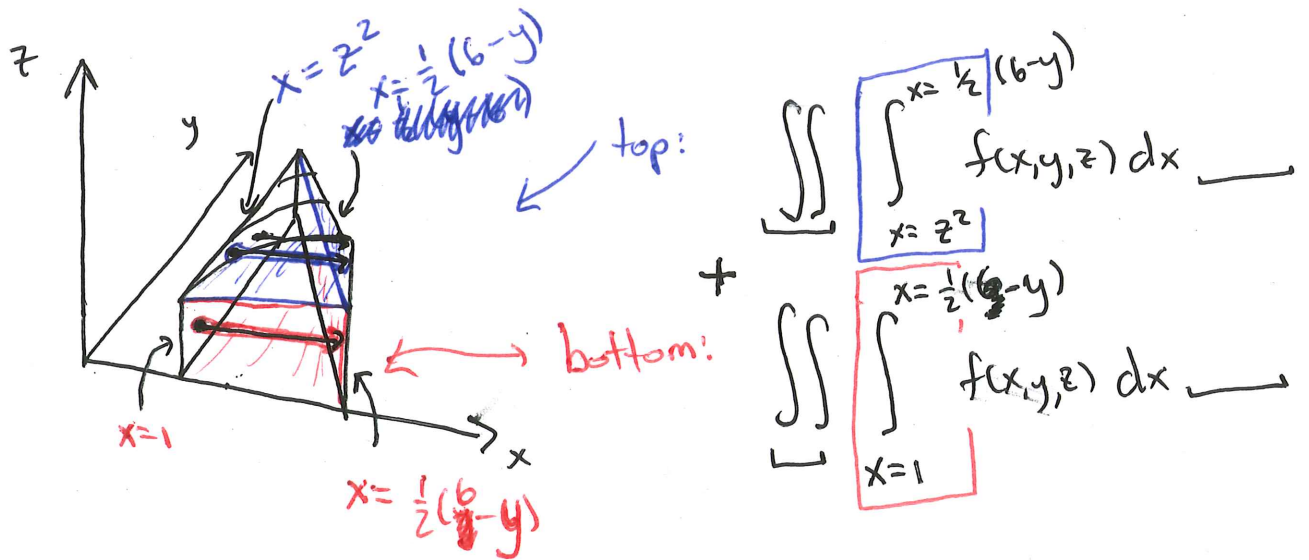 z
y
x = z²
x = ½(6-y)
top:
∬ ∫ x = ½(6-y) f(x,y,z) dx ___
x = z²
+
bottom:
∬ ∫ x = ½(6-y) f(x,y,z) dx ___
x = 1
x=1
x
x = ½(6-y)